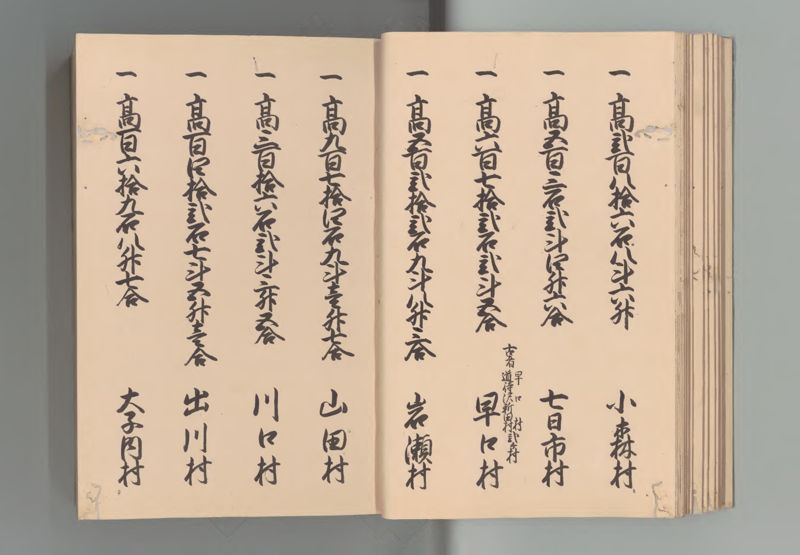 一 高弐百八拾六石八斗六升 小森村
一 高五百三石弐斗四升六合 七日市村
一 高六百七拾弐石弐斗五合 早口村
古者 早口村 道傳沢新田村弐ヶ村
一 高五百弐拾弐石九斗八升三合 岩瀬村
一 高九百七拾四石九斗壱升七合 山田村
一 高三百拾六石弐斗三升五合 川口村
一 高百四拾弐石七斗五升壱合 出川村
一 高百六拾九石八升七合 大子内村